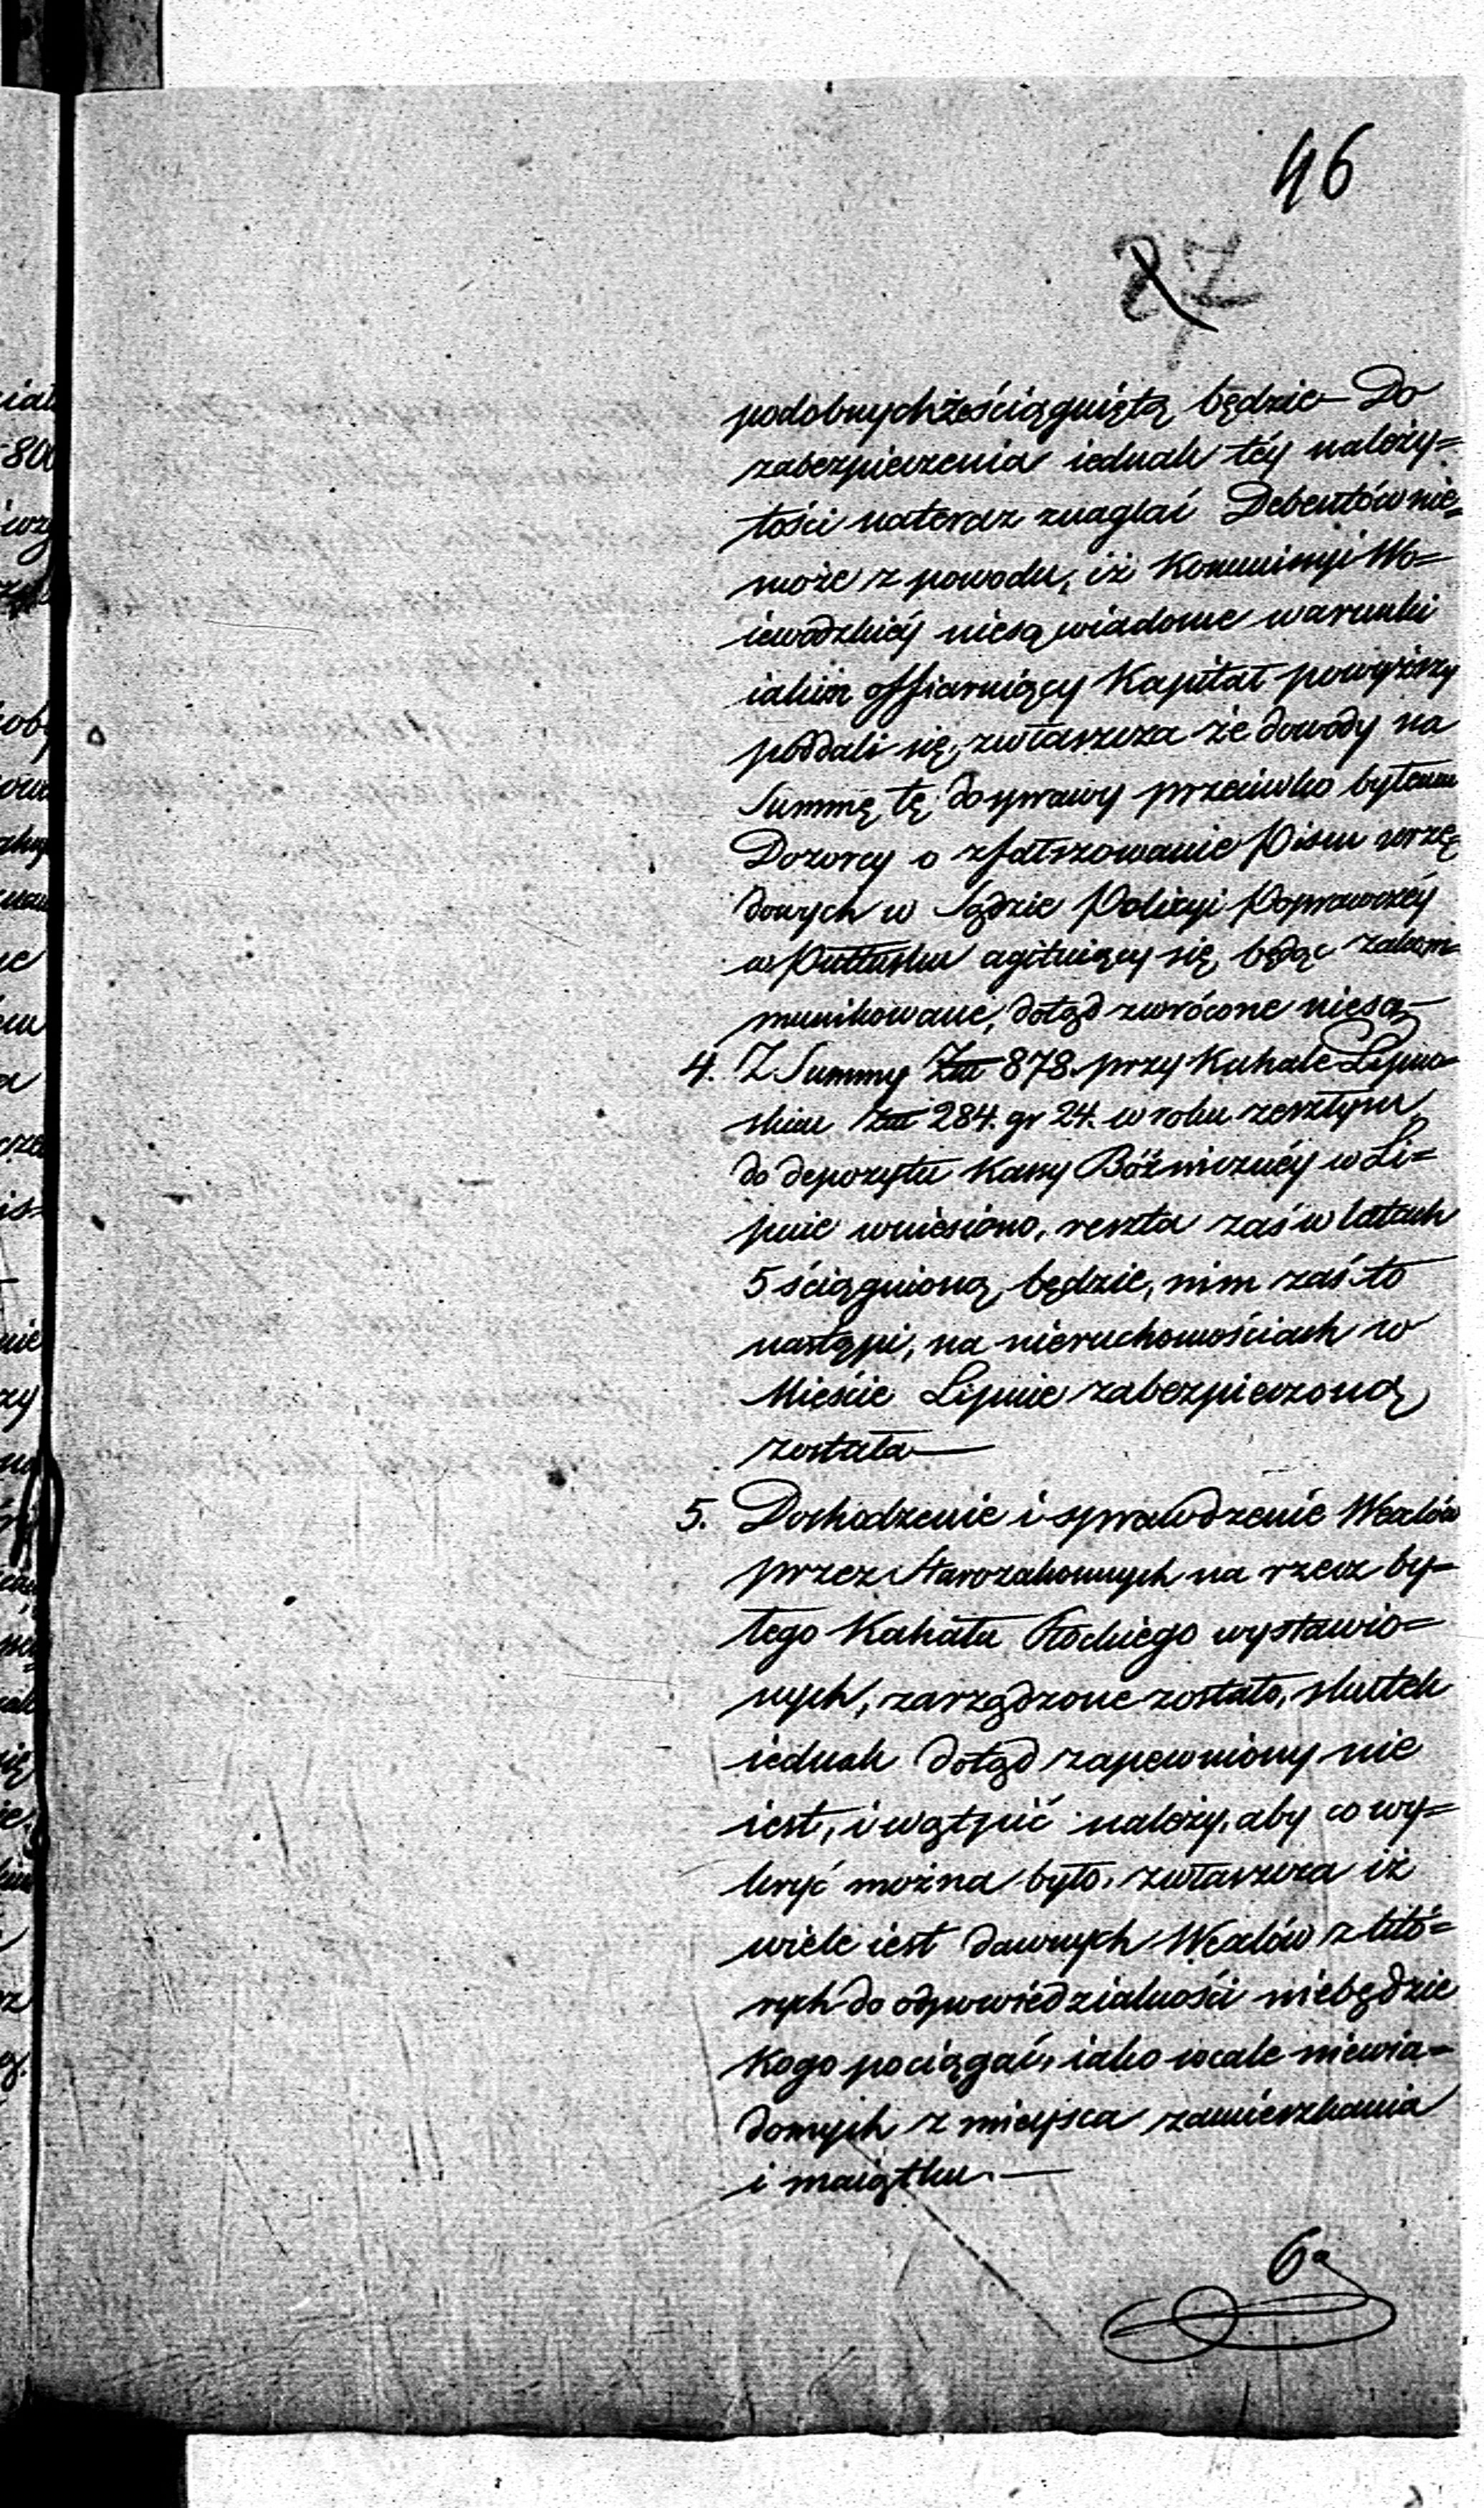 46
27
podobnychże ściągniętą będzie — Do
zabezpieczenia iednak téy należy=
tości nateraz znaglać Debentów nie=
może z powodu, iż Kommissyi Wo=
iewodzkiéy niesą wiadome warunki
iakim offiaruiący Kapitał powyższy
poddali się, zwłaszcza że dowody na
Summę tę do sprawy przeciwko byłemu
Dozorcy o zfałszowanie Pism urzę=
dowych w Sądzie Policyi Poprawczéy
w Pułtusku agituiący się, będąc zakom=
munikowane, dotąd zwrócone niesą —
4. Z Summy Złł 878. przy Kahale Lipno=
skim Złł 284. gr 24. w roku zeszłym
do depozytu Kassy Bóźnicznéy w Li=
pnie wniesiono, reszta zaś w latach
5 ściągnioną będzie, nim zaś to
nastąpi, na nieruchomościach w
Mieście Lipnie zabezpieczoną
została —
5. Dochodzenie i sprawdzenie Wexlów
przez Starozakonnych na rzecz by=
łego Kahału Płockiego wystawio=
nych, zarządzone zostało, skutek
iednak dotąd zapewniony nie
iest, i wątpić należy, aby co wy=
kryć można było, zwłaszcza iż
wiele iest dawnych Wexlów z któ=
rych do odpowiedzialności niebędzie
kogo pociągać, iako wcale niewia=
domych z mieysca zamieszkania
i maiątku. —
6a